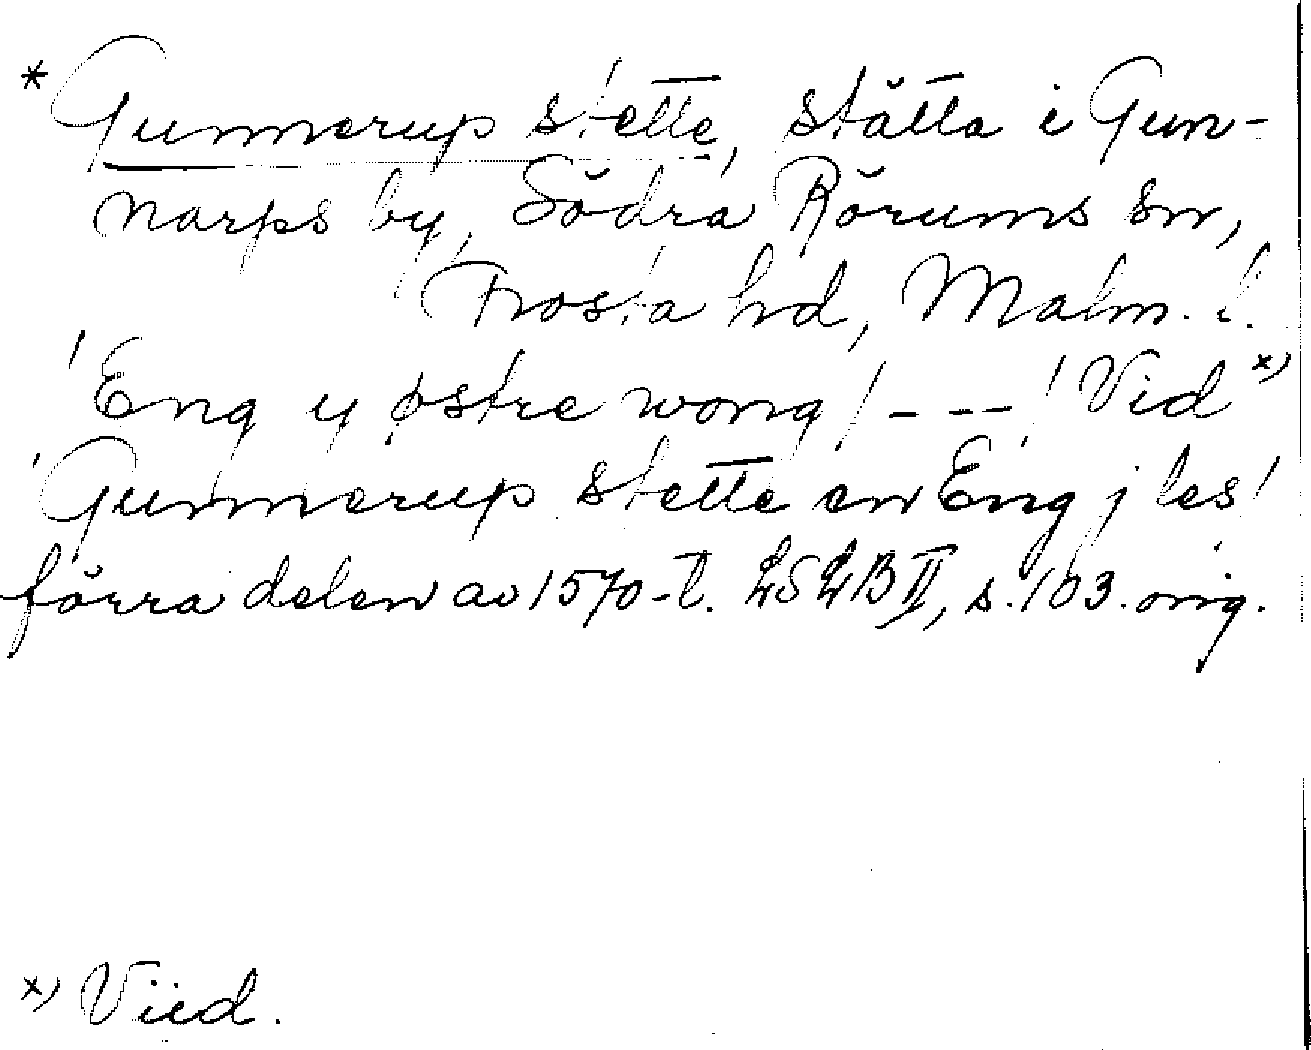 * Gunnerup stette, stätta i Gun-
narps by, Södra Rörums sn,
Frosta hd, Malm. l.
'Eng y østre wong / - - - / Vid x)
Gunnerup stette en Eng j les'
förra delen av 1570-t. LSLB II, s. 103. orig.
x) Viid.